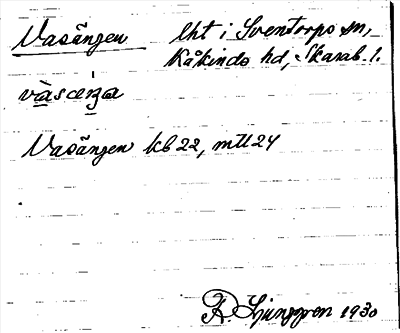 Vasängen lht i Sventorps sn,
Kåkinds hd, Skarab. l.
vàsæŋa
Vasängen kb 22, mtl 24
R. Ljunggren 1930